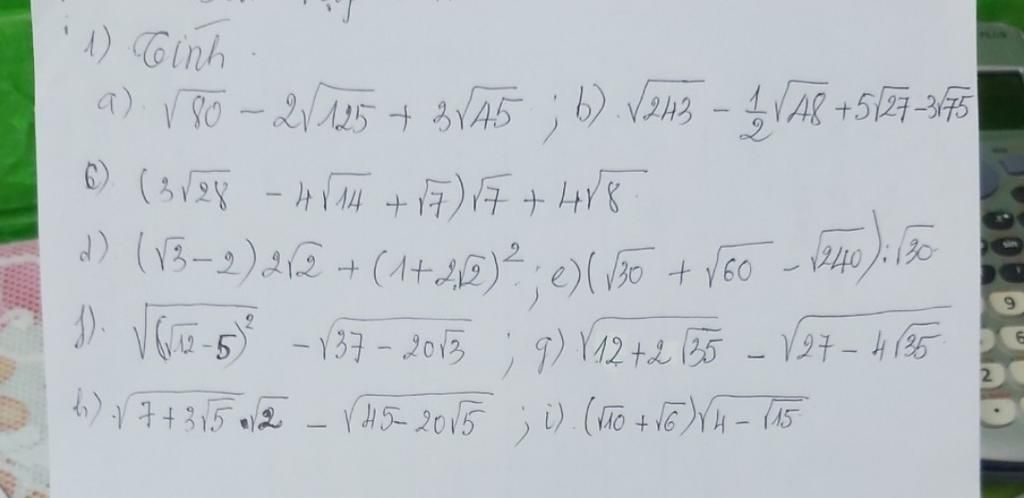 1) Tính
a) √80 - 2√125 + 3√45 ; b) √243 - 1/2√48 + 5√27 - 3√75
c) (3√28 - 4√14 + √7)√7 + 4√8
d) (√3 - 2) 2√2 + (1 + 2√2)² ; e) (√30 + √60 - √240) : √30
f) √(√12 - 5)² - √37 - 20√3 ; g) √12 + 2√35 - √27 - 4√35
h) √7 + 3√5 . √2 - √45 - 20√5 ; i) (√10 + √6)√4 - √15
9
6
2